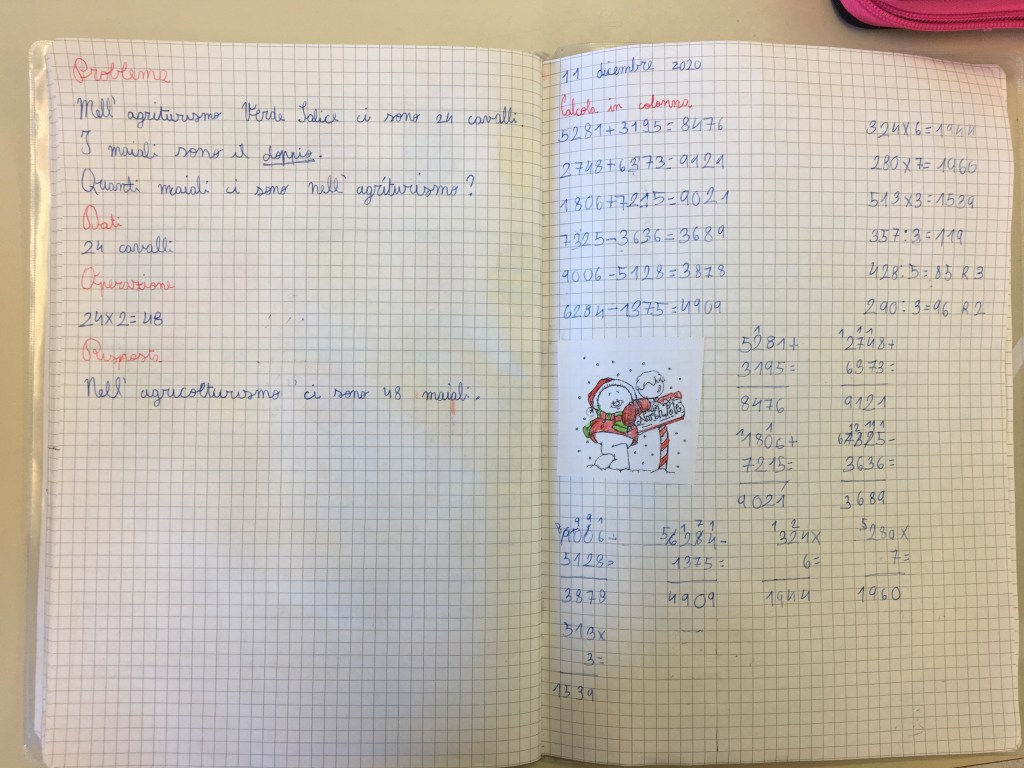 Problema
Nell' agriturismo Verde Salice ci sono 24 cavalli.
I maiali sono il doppio.
Quanti maiali ci sono nell' agriturismo?
Dati
24 cavalli
Operazione
24x2=48
Risposta
Nell' agricolturismo ci sono 48 maiali.
11 dicembre 2020
Calcola in colonna
5281+3195=8476
2748+6373=9121
1806+7215=9021
7325-3636=3689
9006-5128=3878
6284-1375=4909
324x6=1944
280x7=1960
513x3=1539
357:3=119
428:5=85 R3
290:3=96 R2
North Pole
1
5281+
3195=
8476
1 1 1
2748+
6373=
9121
1 1
1806+
7215=
9021
6 12 11 1
7325-
3636=
3689
8 9 9 1
9006-
5128=
3878
5 1 7 1
6284-
1375=
4909
1 2
324x
6=
1944
5
280x
7=
1960
513x
3=
1539